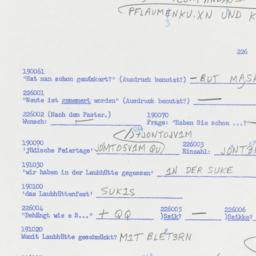 PFLAUMENKU.XN UND K
226
190061
"Hat man schon gemäskert?" (Ausdruck benutzt?) — BUT MASK
226001
"Heute ist gemenert worden" (Ausdruck benutzt?) —
226002 (Nach dem Fasten.) 190070
Wunsch: — Frage: "Haben Sie schon ...? —
JONTOSVIM
190090 226003
'jüdische Feiertage' JOMTOSVIM QU) Einzahl: JONT
191030
'wir haben in der Laubhütte gegessen' IN DER SUKE
190100
'das Laubhüttenfest' SUKIS
226004 226005 226006
"Gehängt wie e S..." + QQ )Szik? — )Szikke?
191020
Womit Laubhütte geschmückt? MIT BLETERN